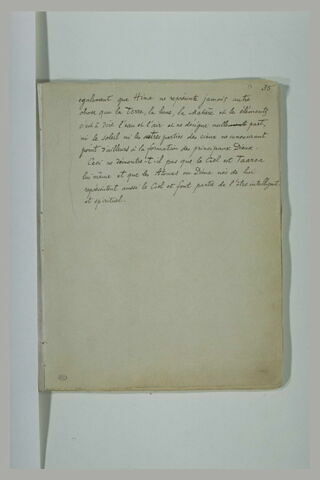 35
également que Hina ne représente jamais autre
chose que la Terre, la lune, la Matière et les éléments
c'est à dire l'eau et l'air et ne désigne nulle part,
ni le soleil ni les autres parties des cieux ne concourant
point d'ailleurs à la formation des principaux Dieux.
Ceci ne démontre-t-il pas que le Ciel est Taaroa
lui même et que les Atouas ou Dieux nés de lui
représentent aussi le Ciel et font partie de l'être intelligent
et spirituel.